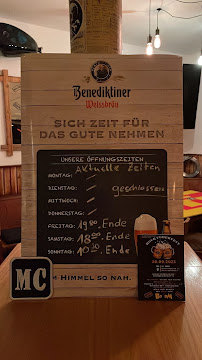 Benediktiner
Weissbräu
SICH ZEIT FÜR
DAS GUTE NEHMEN
UNSERE ÖFFNUNGSZEITEN
Aktuelle Zeiten
MONTAG:
DIENSTAG:
geschlossen
MITTWOCH:
DONNERSTAG:
FREITAG: 19 00 Ende
SAMSTAG: 18 00 Ende
SONNTAG: 10 30 Ende
MC
HIMMEL SO NAH.